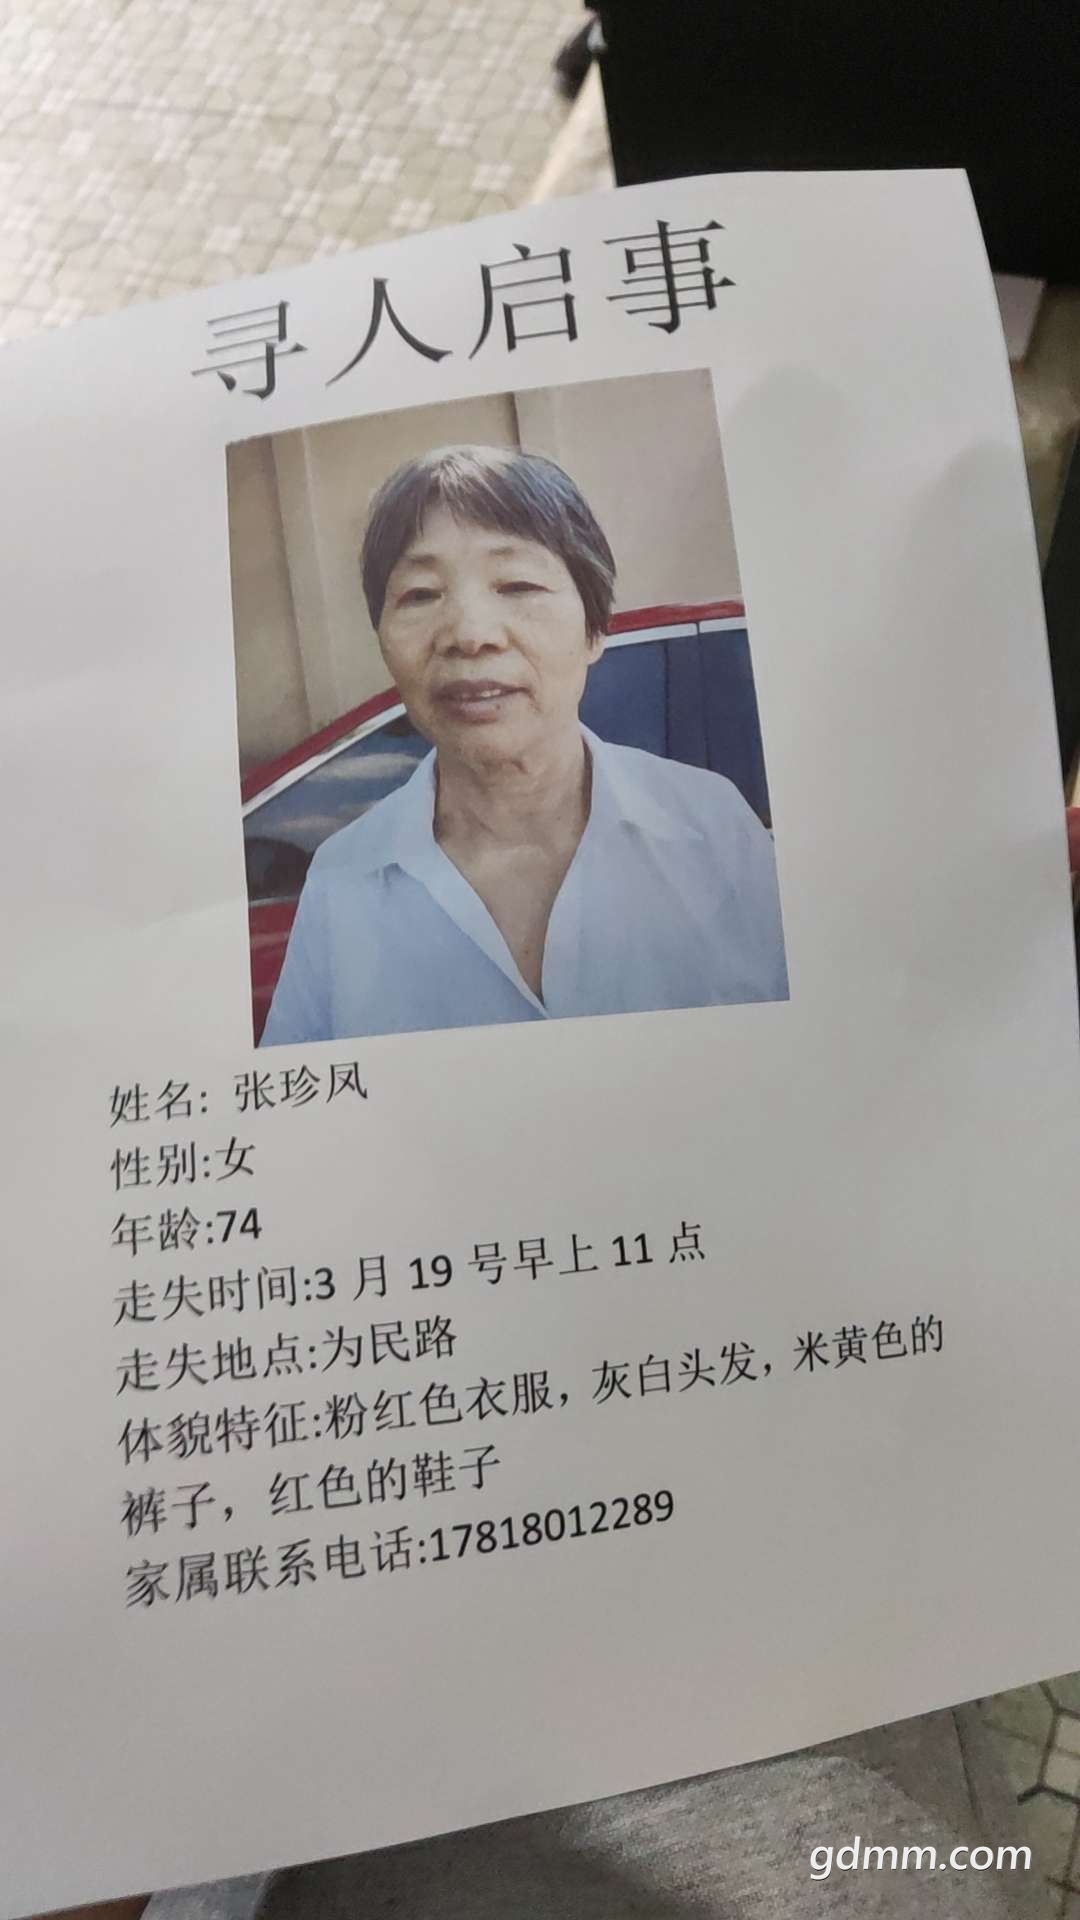 寻人启事
姓名: 张珍凤
性别:女
年龄:74
走失时间:3 月 19 号早上 11 点
走失地点:为民路
体貌特征:粉红色衣服，灰白头发，米黄色的
裤子，红色的鞋子
家属联系电话:17818012289
gdmm.com